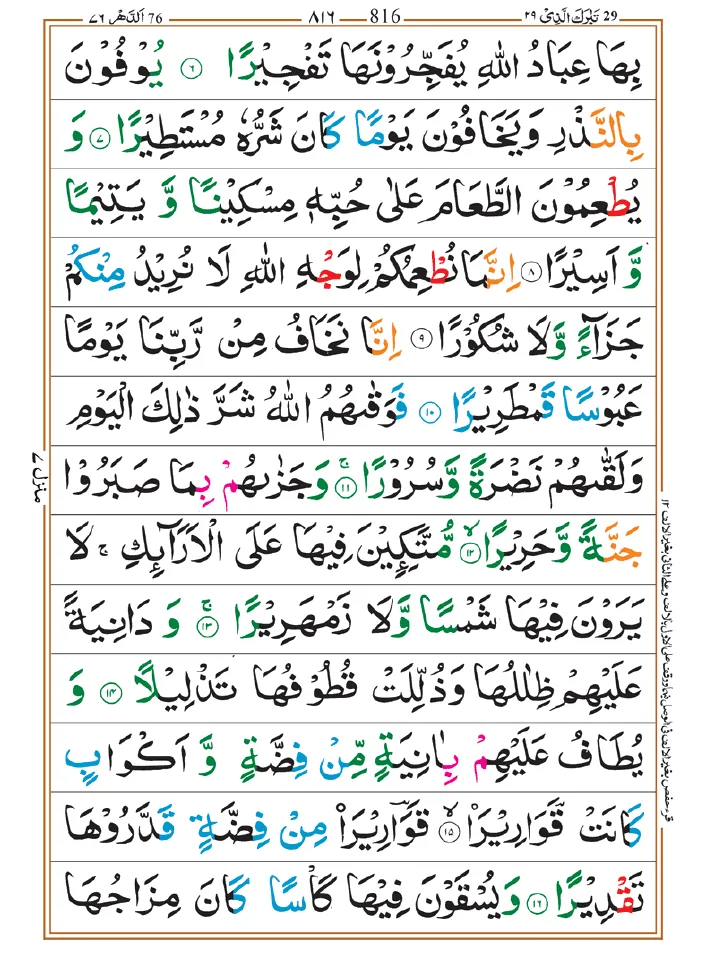 29 تَبٰرَكَ الَّذِىْ ٢٩ 816 ٨١٦ 76 اَلدَّهْر ٧٦
بِهَا عِبَادُ اللّٰهِ يُفَجِّرُوْنَهَا تَفْجِيْرًا ۝٦ يُوْفُوْنَ
بِالنَّذْرِ وَيَخَافُوْنَ يَوْمًا كَانَ شَرُّهٗ مُسْتَطِيْرًا ۝٧ وَ
يُطْعِمُوْنَ الطَّعَامَ عَلٰى حُبِّهٖ مِسْكِيْنًا وَّ يَتِيْمًا
وَّ اَسِيْرًا ۝٨ اِنَّمَا نُطْعِمُكُمْ لِوَجْهِ اللّٰهِ لَا نُرِيْدُ مِنْكُمْ
جَزَآءً وَّلَا شُكُوْرًا ۝٩ اِنَّا نَخَافُ مِنْ رَّبِّنَا يَوْمًا
عَبُوْسًا قَمْطَرِيْرًا ۝١٠ فَوَقٰىهُمُ اللّٰهُ شَرَّ ذٰلِكَ الْيَوْمِ
وَلَقّٰىهُمْ نَضْرَةً وَّسُرُوْرًا ۝١١ۚ وَجَزٰىهُمْ بِمَا صَبَرُوْا
جَنَّةً وَّحَرِيْرًا ۝١٢ۙ مُّتَّكِـِٕيْنَ فِيْهَا عَلَى الْاَرَآئِكِ ۚ لَا
يَرَوْنَ فِيْهَا شَمْسًا وَّلَا زَمْهَرِيْرًا ۝١٣ۚ وَ دَانِيَةً
عَلَيْهِمْ ظِلٰلُهَا وَذُلِّلَتْ قُطُوْفُهَا تَذْلِيْلًا ۝١٤ وَ
يُطَافُ عَلَيْهِمْ بِاٰنِيَةٍ مِّنْ فِضَّةٍ وَّ اَكْوَابٍ
كَانَتْ قَوَارِيْرَا۠ ۝١٥ۙ قَوَارِيْرَا۠ مِنْ فِضَّةٍ قَدَّرُوْهَا
تَقْدِيْرًا ۝١٦ وَيُسْقَوْنَ فِيْهَا كَاْسًا كَانَ مِزَاجُهَا
منزل ٧